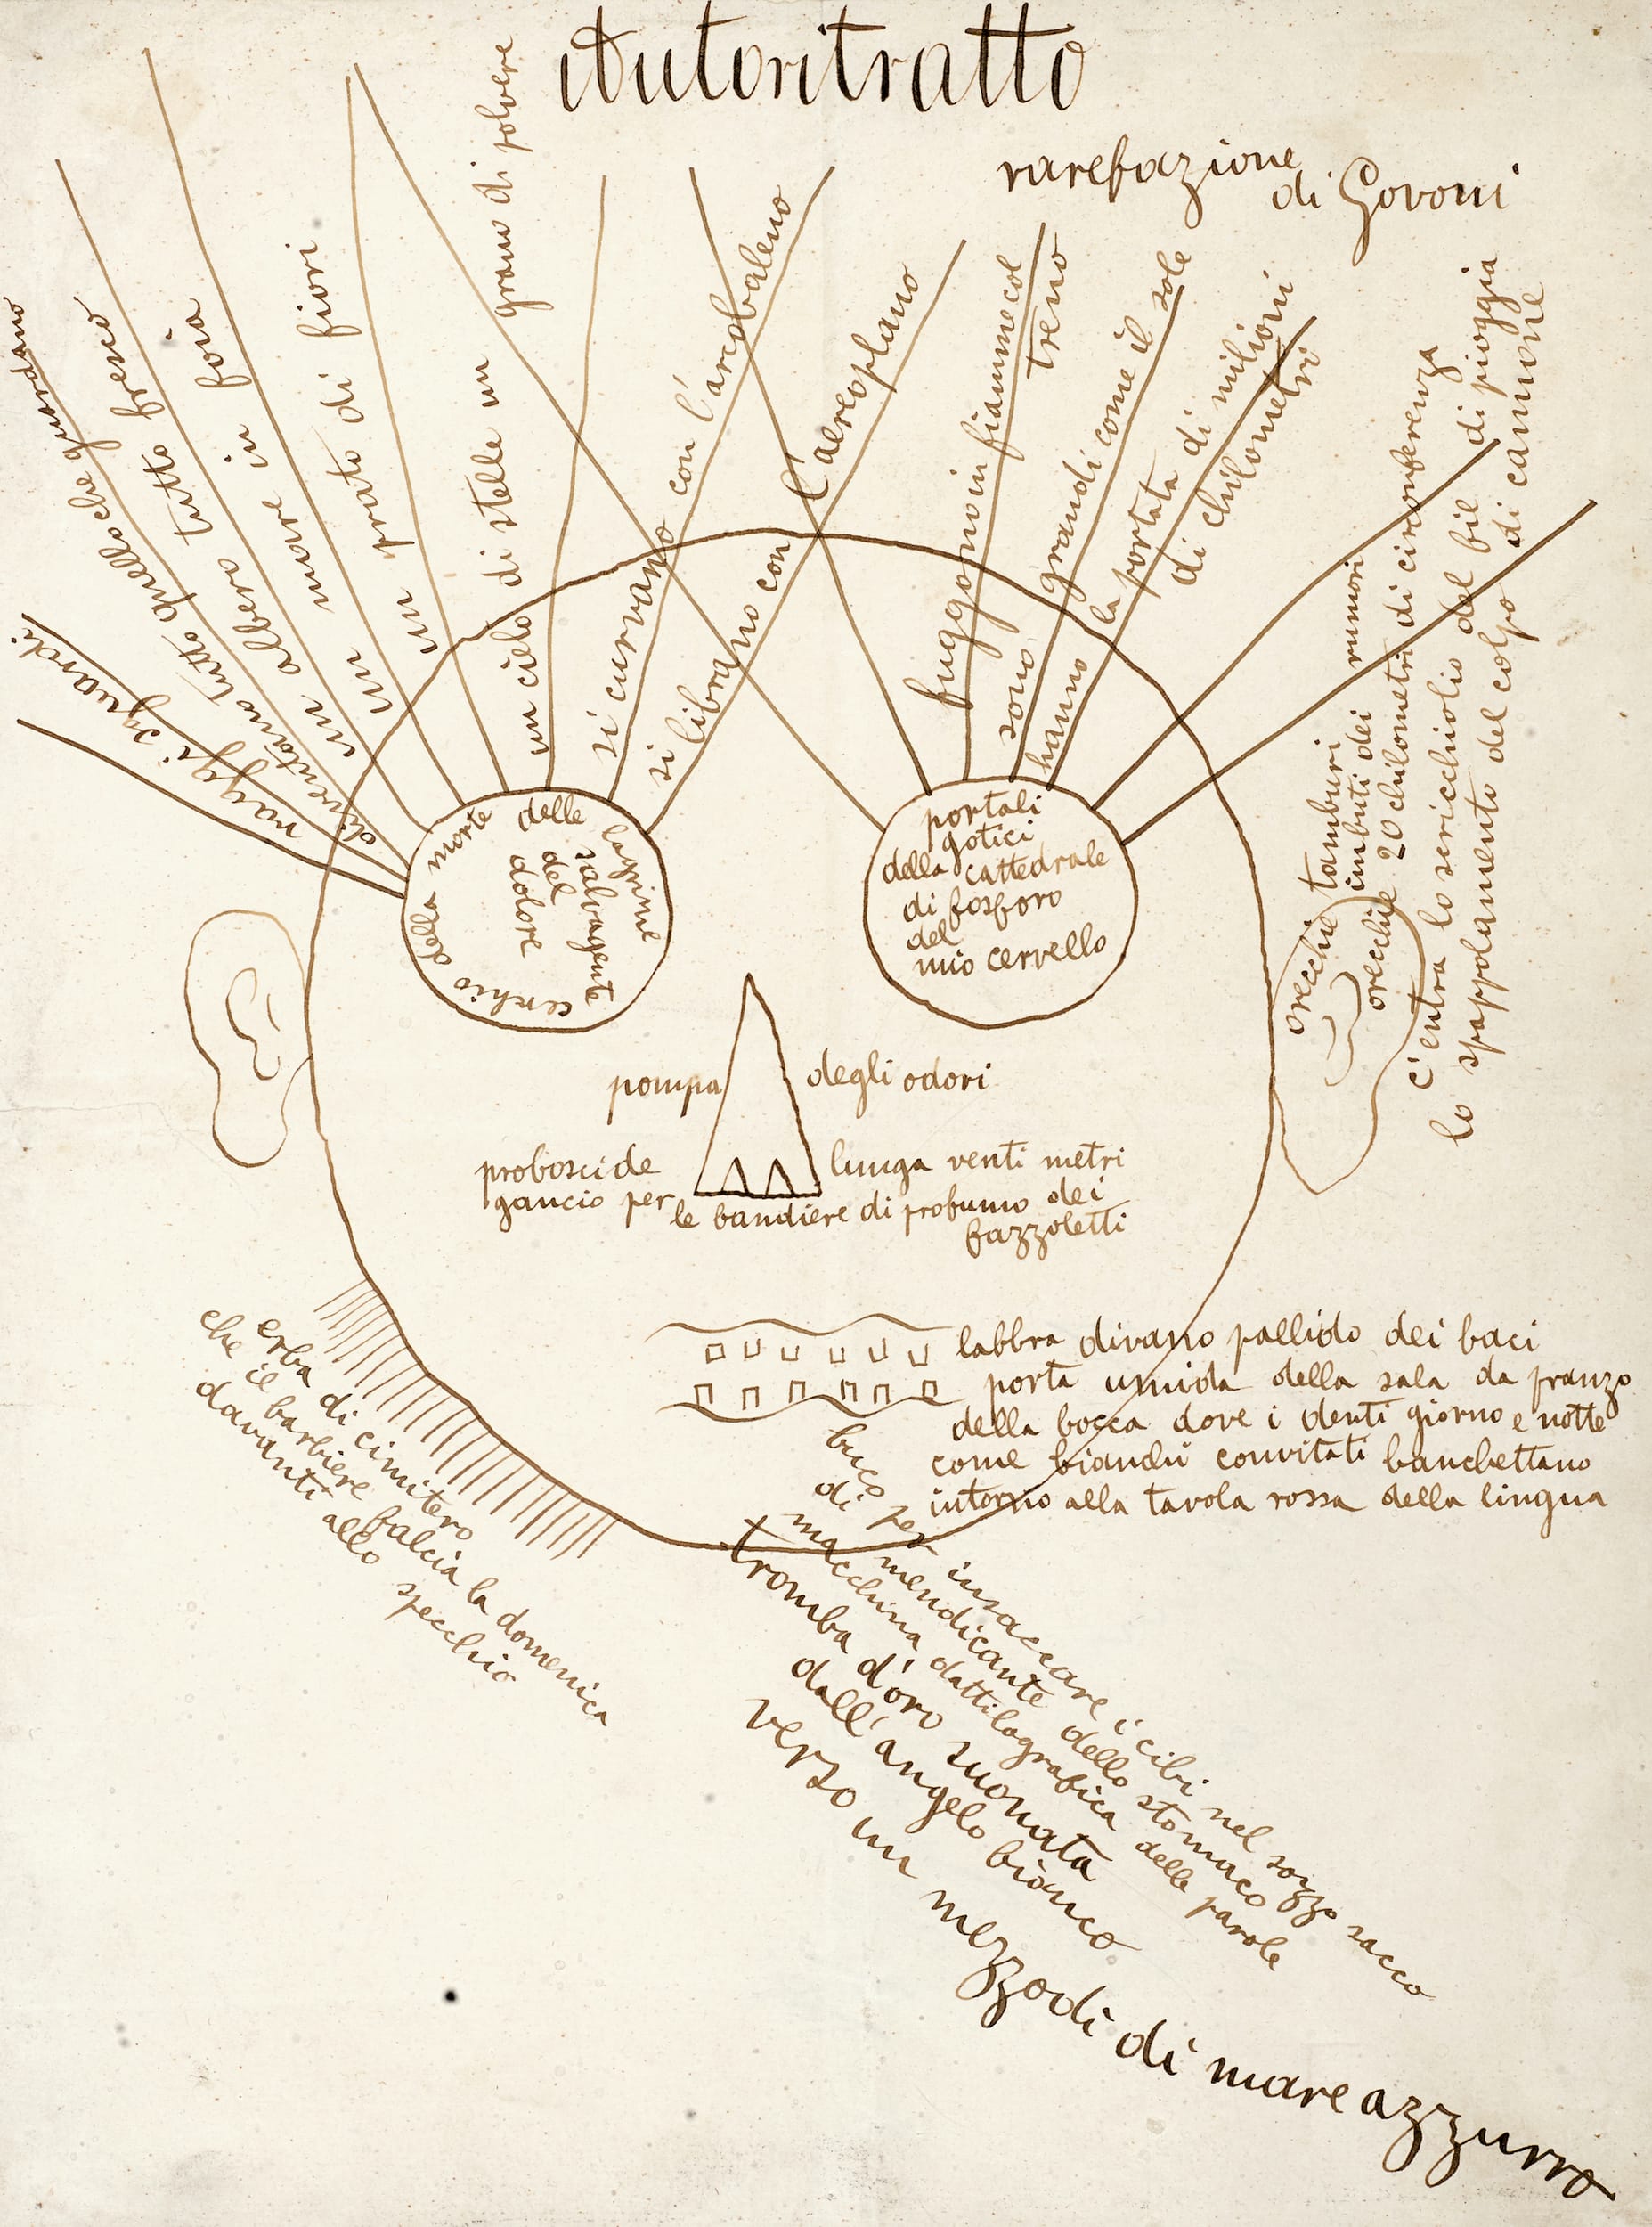 Autoritratto
rarefazione
di Govoni
raggi sguardi
diventano tutto quello che guardano
un albero tutto fresco
un mare in foia
un prato di fiori
un cielo di stelle un grano di polvere
si curvano con l'arcobaleno
si librano con l'aereoplano
fuggono in fiamme col
treno
sono grandi come il sole
hanno la portata di milioni
di chilometri
cerchio della morte delle lagrime
salvagente
del
dolore
portali
gotici
della cattedrale
di fosforo
del
mio cervello
orecchie tamburi
imbuti dei rumori
orecchie 20 chilometri di circonferenza
c'entra lo scricchiolio del fil di pioggia
lo spappolamento del colpo di cannone
pompa degli odori
proboscide lunga venti metri
gancio per le bandiere di profumo dei
fazzoletti
labbra divano pallido dei baci
porta umida della sala da pranzo
della bocca dove i denti giorno e notte
come bianchi convitati banchettano
intorno alla tavola rossa della lingua
erba di cimitero
che il barbiere falcia la domenica
davanti allo specchio
buco per insaccare i cibi nel sozzo sacco
di mendicante dello stomaco
macchina dattilografica delle parole
tromba d'oro suonata
dall'angelo bianco
verso un mezzodì di mare azzurro